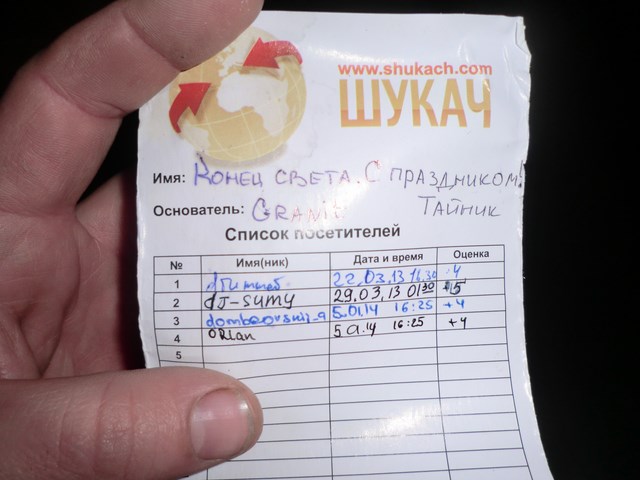 www.shukach.com
ШУКАЧ
Имя: Конец света. С праздником!
Основатель: GRANIT Тайник
Список посетителей
№ Имя(ник) Дата и время Оценка
1 22,03,13 16,30 4
2 dJ-sumy 29,03,13 01:30 +5
3 5.01.14 16:25 +4
4 ORlan 5 01.14 16:25 +4
5